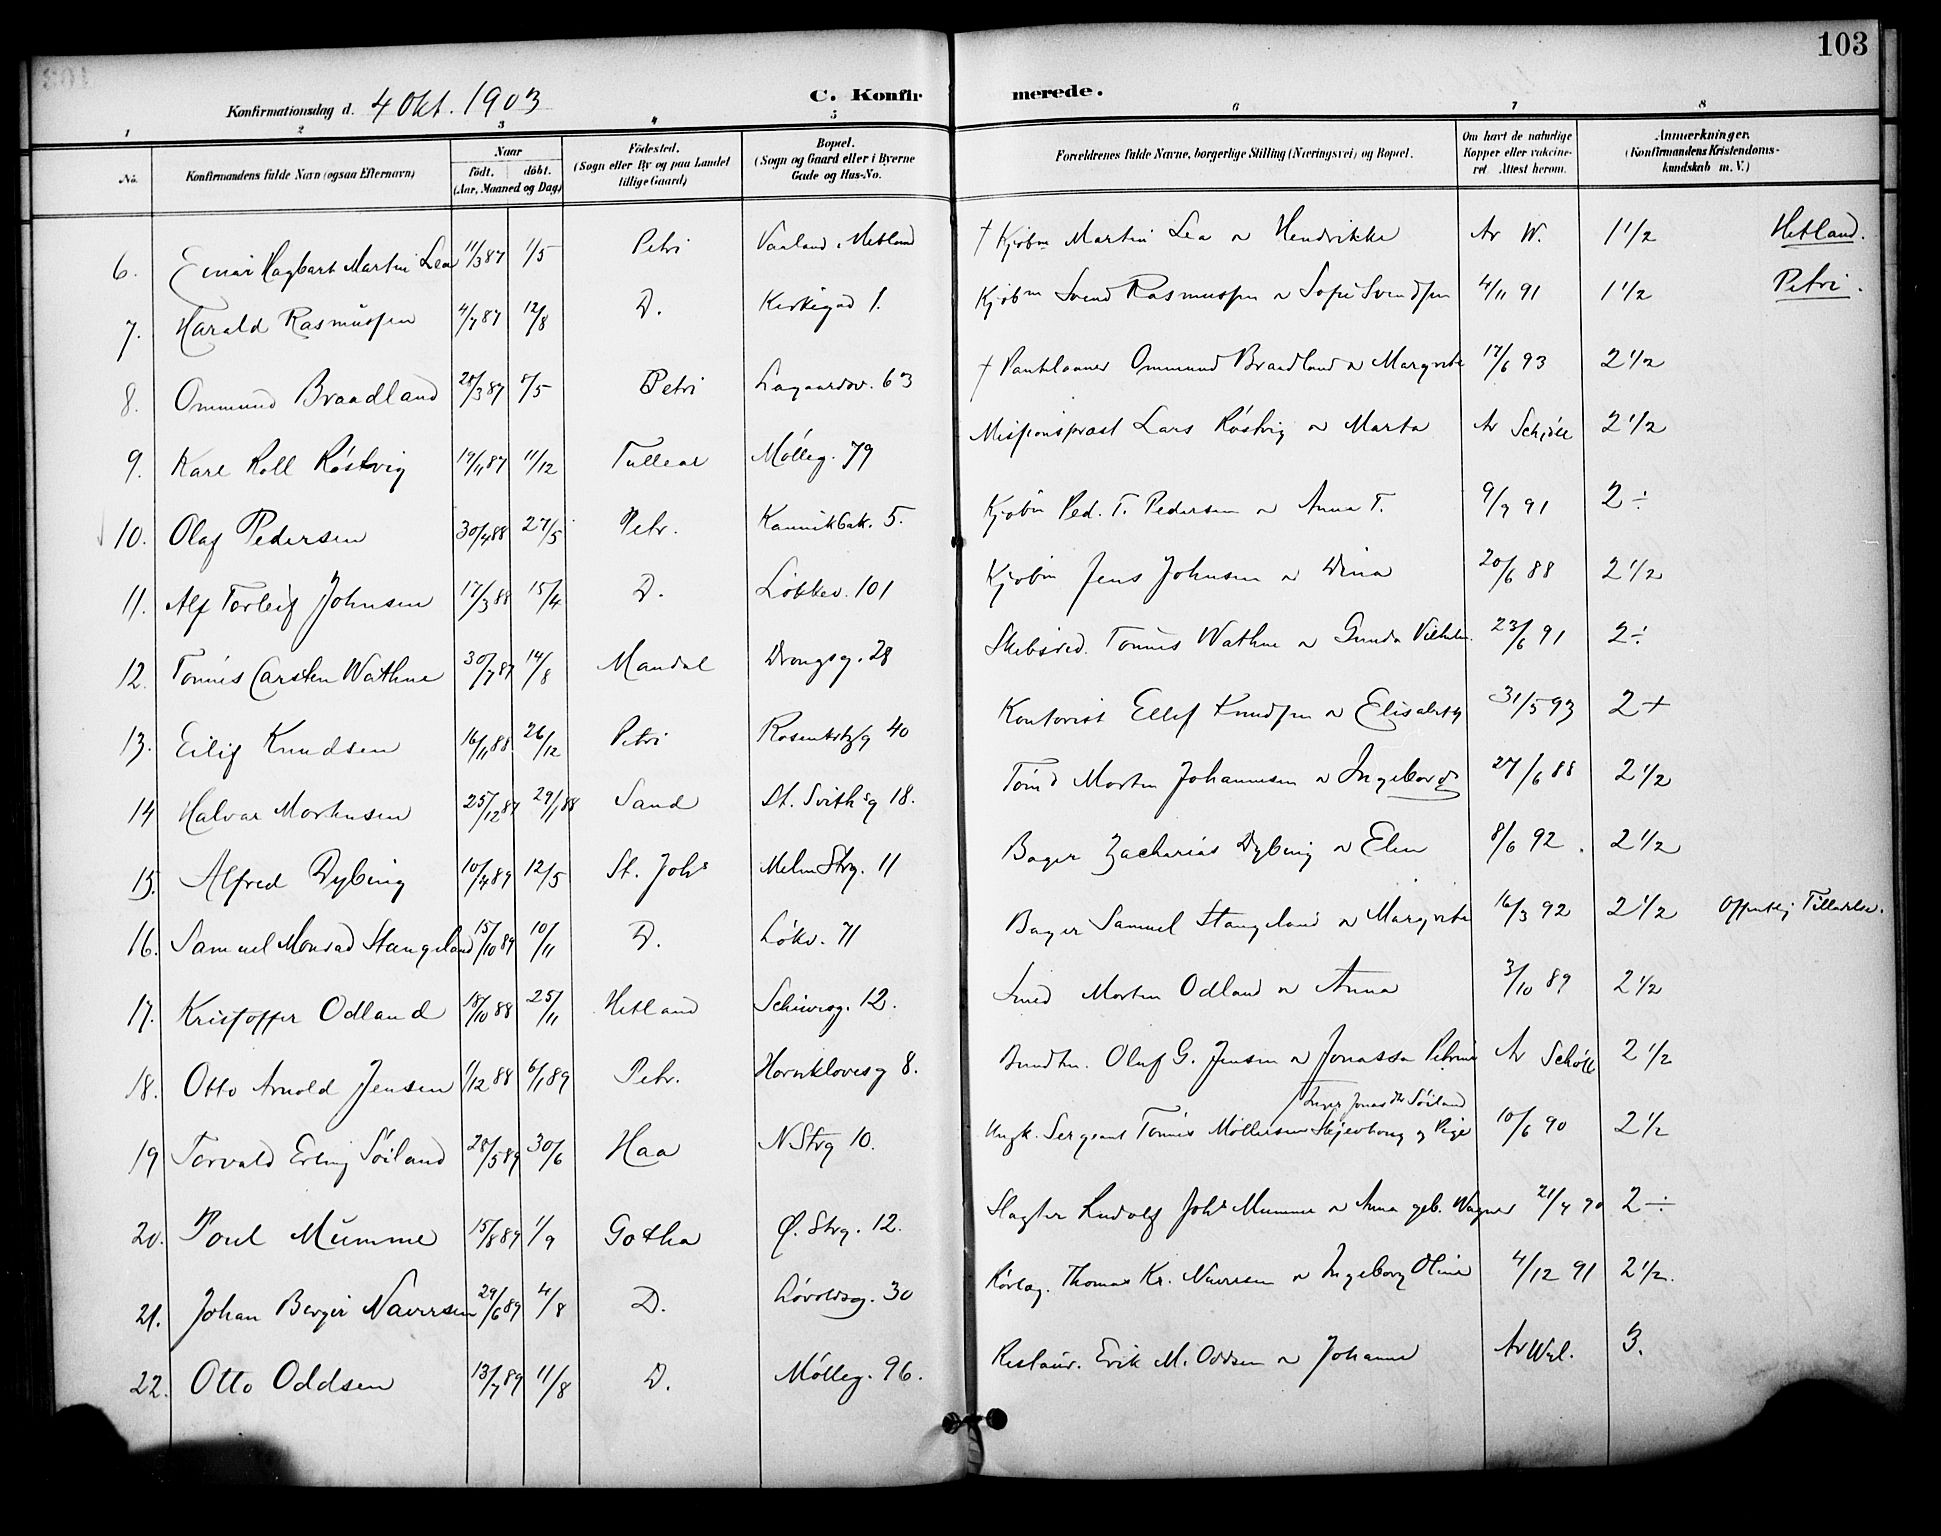 103
Konfirmationsdag d. 4 Okt. 1903 C. Konfirmerede.
1 2 3 4 5 6 7 8
No. Konfirmandens fulde Navn (ogsaa Efternavn) Naar født. døbt. (Aar, Maaned og Dag) Fødested. (Sogn eller By og paa Landet tillige Gaard) Bopæl. (Sogn og Gaard eller i Byerne Gade og Hus-No. Forældrenes fulde Navne, borgerlige Stilling (Næringsvei) og Bopæl. Om havt de naturlige Kopper eller vakcineret. Attest herom. Anmærkninger. (Konfirmandens Kristendomskundskab m. V.)
6. Einar Hagbart Martin Lea 11/3 87 1/5 Petri Vaaland, Hetland † Kjøbm Martin Lea o Hendrikke Av W. 1 1/2 Hetland.
7. Harald Rasmussen 4/7 87 12/8 D. Kirkegad 1. Kjøbm Svend Rasmussen o Sofie Svendsen 4/11 91 1 1/2 Petri.
8. Ommund Braadland 28/3 87 8/5 Petri Lagaardsv. 63 † Pantelaaner Ommund Braadland o Margrete 17/6 93 2 1/2
9. Karl Roll Røstvig 19/11 87 11/12 Tullear Mølleg. 79 Missionspræst Lars Røstvig o Marta Av 2 1/2
10. Olaf Pedersen 30/4 88 27/5 Petr. Kannikbak. 5. Kjøbm Ped. T. Pedersen o Anna T. 9/9 91 2 ÷
11. Alf Torleif Johnsen 17/3 88 15/4 D. Løkkev. 101 Kjøbm Jens Johnsen o Dina 20/6 88 2 1/2
12. Tønnes Carsten Wathne 30/7 87 14/8 Mandal Drongsg. 28 Skibsred. Tønnes Wathne o Gunda Vilhelm. 23/6 91 2 ÷
13. Eilif Knudsen 16/11 88 26/12 Petri Rosenkrtzg 40 Kontorist Ellef Knudsen o Elisabeth 31/5 93 2 +
14 Halvar Mortensen 25/12 87 29/1 88 Sand St. Svithsg 18. Tømd Morten Johannesen o Ingeborg 27/6 88 2 1/2
15. Alfred Dybing 10/4 89 12/5 St. Johs Melm Strg. 11 Bager Zacharias Dybing o Elen 8/6 92. 2 1/2
16. Samuel Monrad Stangeland 15/10 89 10/11 D. Løkv. 71 Bager Samuel Stangeland o Margrete 16/3 92 2 1/2 Offentlig Tilladelse.
17. Kristoffer Odland 18/10 88 25/11 Hetland Schiwesg. 12. Smed Morten Odland o Anna 3/10 89 2 1/2
18. Otto Arnold Jensen 1/12 88 6/1 89 Petr. Hornklovesg 8. Bundtm. Oluf G. Jensen o Jonassa Petrine Av 2 1/2
Inger Jonas Dtr Søiland
19 Torvald Erling Søiland 28/5 89 30/6 Haa N Strg 10. Ungk. Sergeant Tønnes Møllersen Skjevhong og Pige 10/6 90 2 1/2
20. Poul Mumme 15/8 89 1/9 Gotha Ø. Strg. 12. Slagter Rudolf Johs Mumme o Anna geb. Wagner 21/7 90 2 ÷
21. Johan Berger Naversen 29/6 89 4/8 D. Løvoldsg. 30 Rørlæg. Thomas Kr. Naversen o Ingeborg Oline 4/12 91 2 1/2.
22. Otto Oddsen 13/7 89 11/8 D. Mølleg. 96. Restaur. Erik M. Oddsen o Johanne Av Wel. 3.